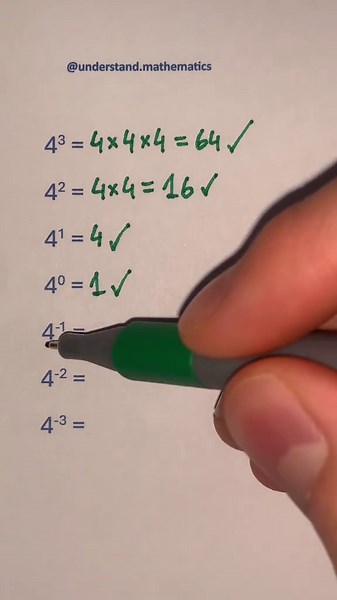 @understand.mathematics
4³ = 4×4×4 = 64 ✓
4² = 4×4 = 16 ✓
4¹ = 4 ✓
4⁰ = 1 ✓
4⁻¹ =
4⁻² =
4⁻³ =